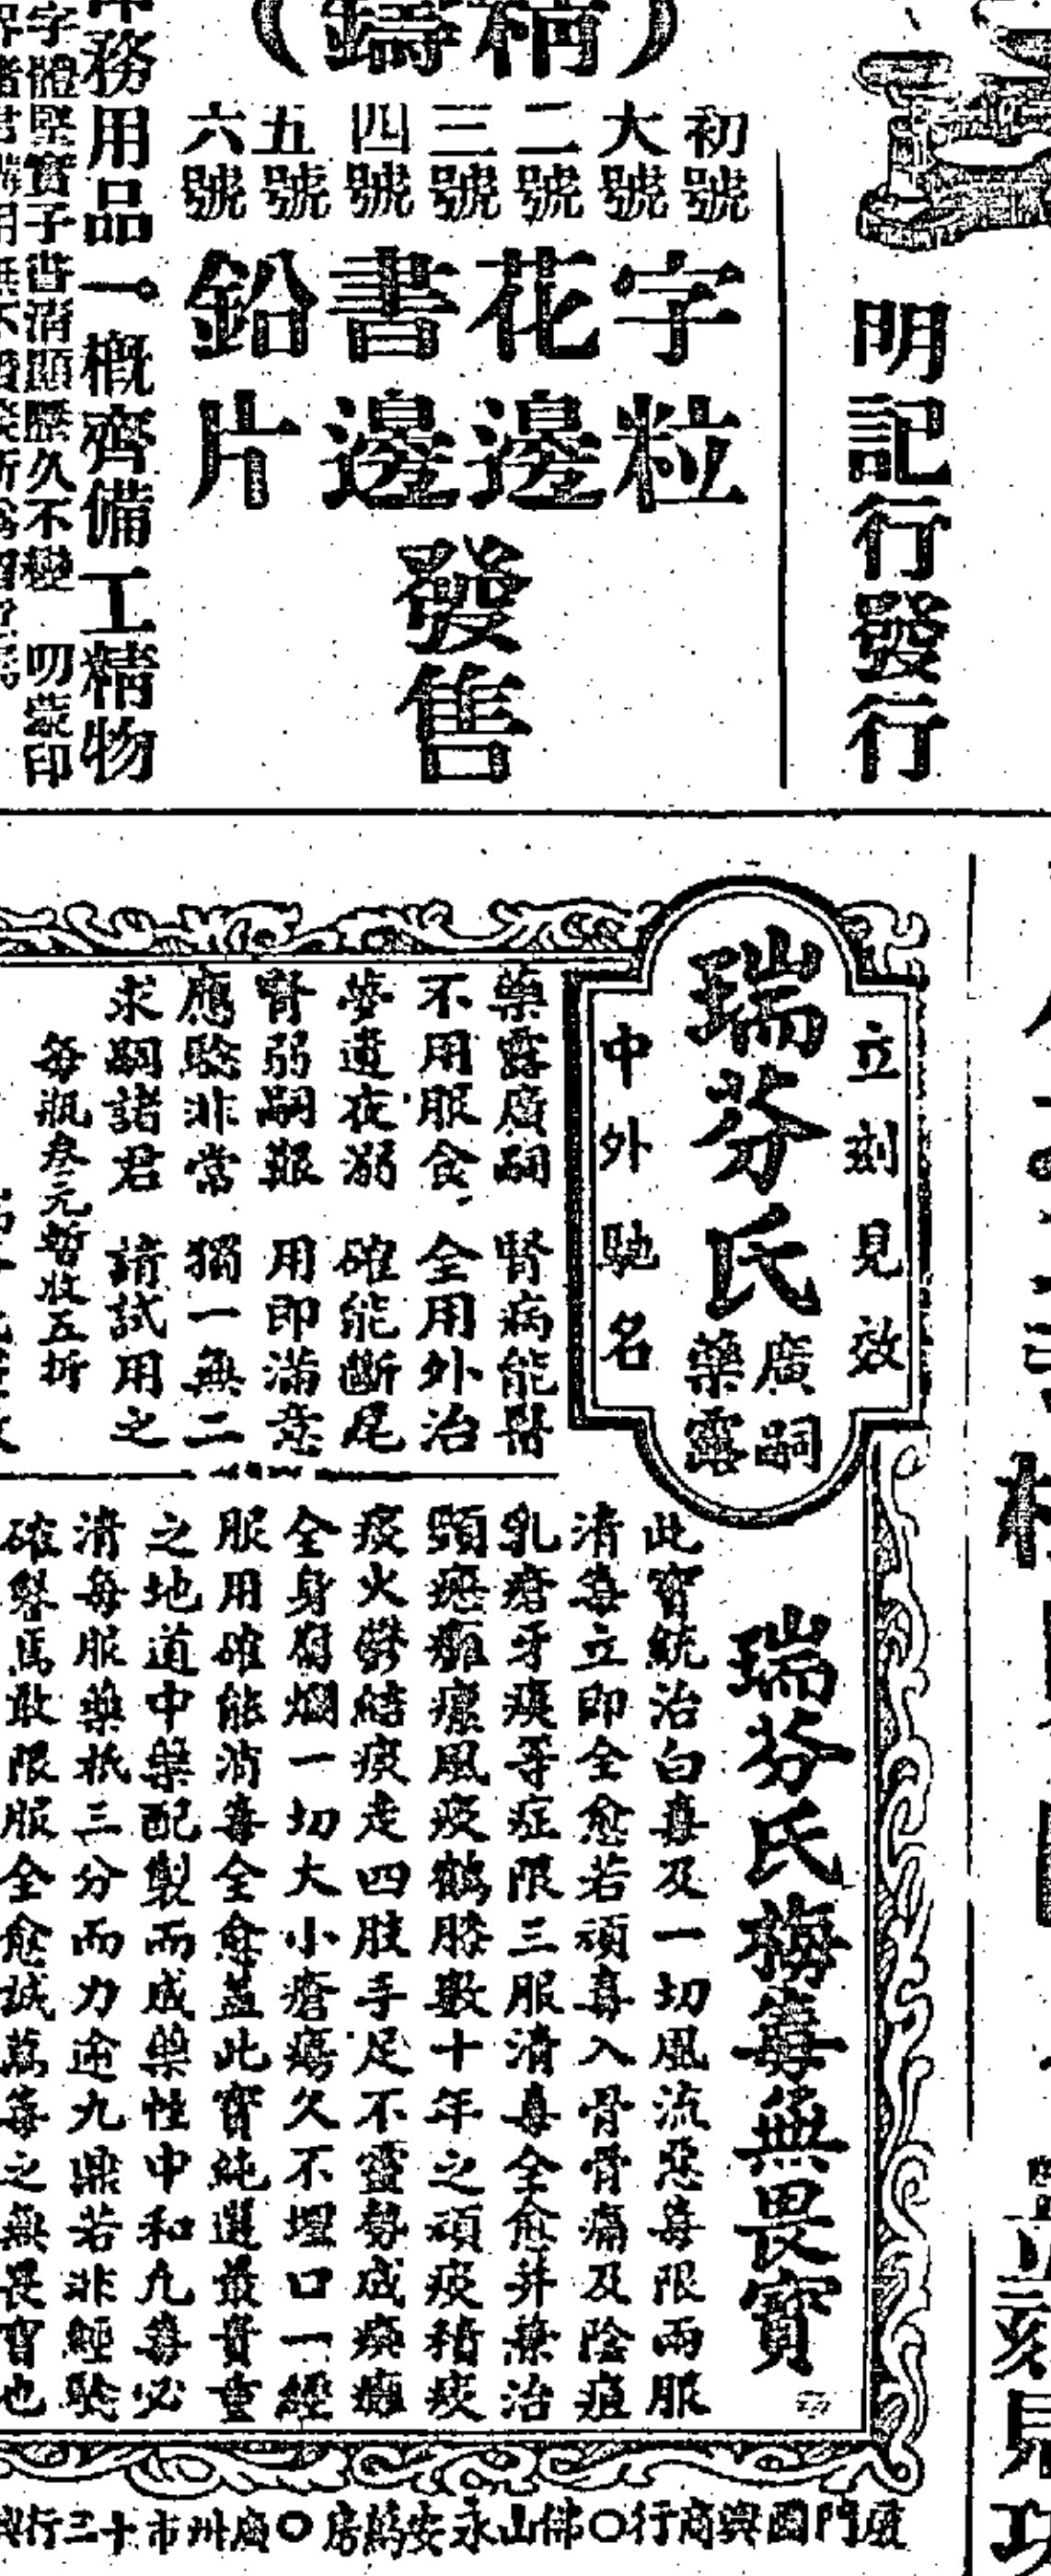 明記行發行
（鑄精）
初號
大號
二號
三號
四號
五號
六號
字粒
花邊
書邊
鉛片
發售
務用品一概齊備工精物
字體堅實子畫清顯歷久不變　叨蒙印
立刻見效
瑞芬氏
廣嗣
藥露
中外馳名
藥露廣嗣　腎病能醫
不用服食　全用外治
夢遺夜溺　確能斷尾
腎弱嗣艱　用即滿意
應驗非常　獨一無二
求嗣諸君　請試用之
每瓶叁元暫收五折
瑞芬氏梅毒無畏寶
此寶統治白毒及一切風流惡毒限兩服
清毒立即全愈若頑毒入骨骨痛及陰疽
乳瘡牙癀等症限三服清毒全愈并兼治
顋癦癱癧風痰鶴膝數十年之頑痰積痰
痰火鬱結痰走四肢手足不靈勢成瘓癱
全身腐爛一切大小瘡瘍久不埋口一經
服用確能消毒全愈蓋此寶純選最貴重
之地道中藥配製而成藥性中和凢毒必
清每服藥祇三分而力逾九鼎若非經驗
確鑿焉敢限服全愈誠萬毒之無畏寶也
廈門國興商行〇佛山永安藥房〇廣州市十三行